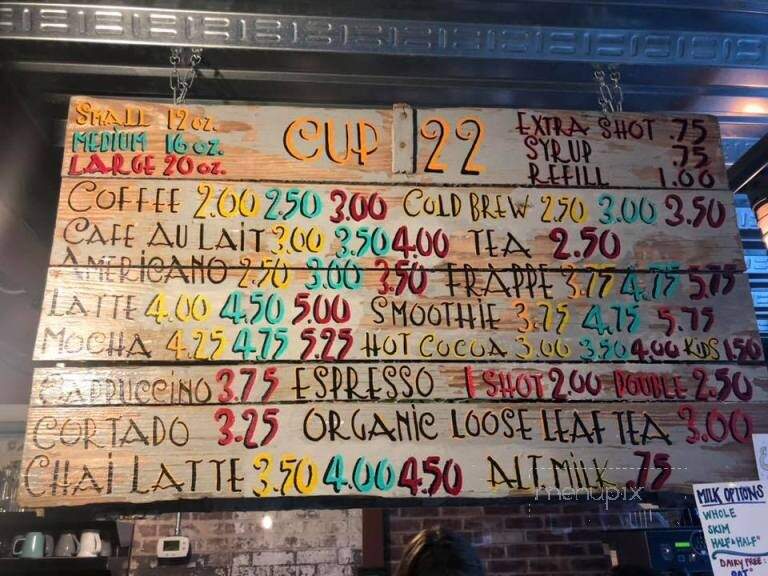 SMALL 12 OZ.
MEDIUM 16 OZ.
LARGE 20 OZ.
CUP 22
EXTRA SHOT .75
SYRUP .75
REFILL 1.00
COFFEE 2.00 2.50 3.00 COLD BREW 2.50 3.00 3.50
CAFE AU LAIT 3.00 3.50 4.00 TEA 2.50
AMERICANO 2.50 3.00 3.50 FRAPPE 3.75 4.75 5.75
LATTE 4.00 4.50 5.00 SMOOTHIE 3.75 4.75 5.75
MOCHA 4.25 4.75 5.25 HOT COCOA 3.00 3.50 4.00 KIDS 1.50
CAPPUCCINO 3.75 ESPRESSO 1 SHOT 2.00 DOUBLE 2.50
CORTADO 3.25 ORGANIC LOOSE LEAF TEA 3.00
CHAI LATTE 3.50 4.00 4.50 ALT. MILK .75
menupix
MILK OPTIONS
WHOLE
SKIM
HALF & HALF
DAIRY FREE:
OAT